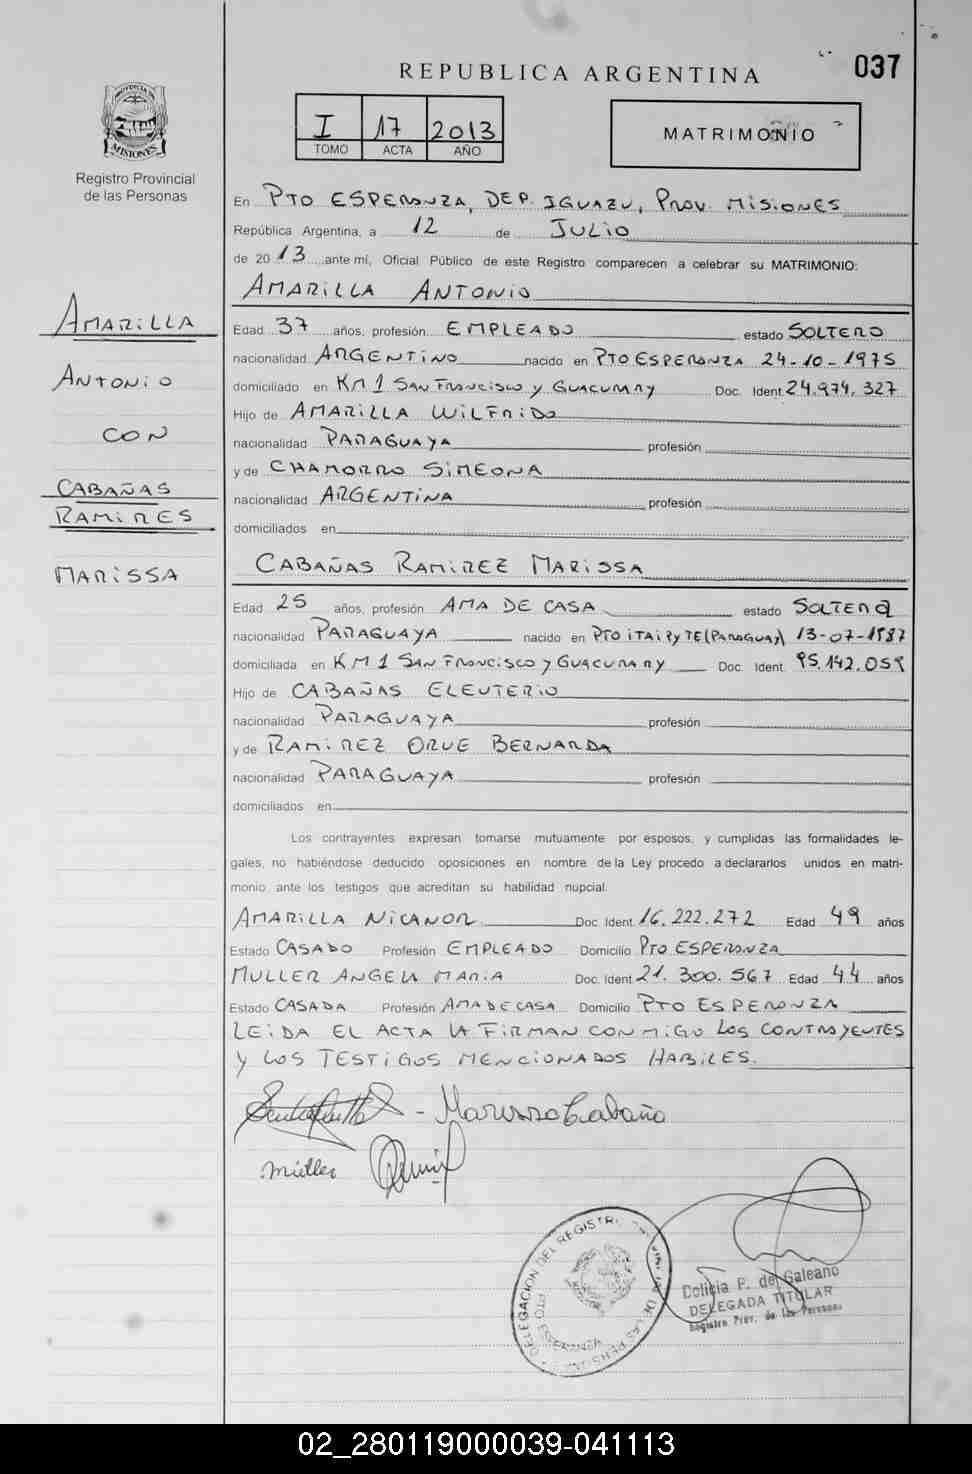 037
REPUBLICA ARGENTINA
PROVINCIA DE
MISIONES
Registro Provincial
de las Personas
I 17 2013
TOMO ACTA AÑO
MATRIMONIO
En PTO ESPERANZA, DEP. IGUAZU, PROV. MISIONES
República Argentina, a 12 de JULIO
de 2013 ante mí, Oficial Público de este Registro comparecen a celebrar su MATRIMONIO:
AMARILLA ANTONIO
AMARILLA
ANTONIO
CON
CABAÑAS
RAMIRES
MARISSA
Edad 37 años, profesión EMPLEADO estado SOLTERO
nacionalidad ARGENTINO nacido en PTO ESPERANZA 24-10-1975
domiciliado en KM 1 SAN FRANCISCO Y GUACURARY Doc. Ident. 24.974.327
Hijo de AMARILLA WILFRIDO
nacionalidad PARAGUAYA profesión
y de CHAMORRO SIMEONA
nacionalidad ARGENTINA profesión
domiciliados en
CABAÑAS RAMIREZ MARISSA
Edad 25 años, profesión AMA DE CASA estado SOLTERA
nacionalidad PARAGUAYA nacido en PTO ITAIPYTE (PARAGUAY) 13-07-1987
domiciliada en KM 1 SAN FRANCISCO Y GUACURARY Doc. Ident. 95.142.059
Hijo de CABAÑAS ELEUTERIO
nacionalidad PARAGUAYA profesión
y de RAMIREZ ORUE BERNARDA
nacionalidad PARAGUAYA profesión
domiciliados en
Los contrayentes expresan tomarse mutuamente por esposos, y cumplidas las formalidades le-
gales, no habiéndose deducido oposiciones en nombre de la Ley procedo a declararlos unidos en matri-
monio ante los testigos que acreditan su habilidad nupcial.
AMARILLA NICANOR Doc. Ident. 16.222.272 Edad 49 años
Estado CASADO Profesión EMPLEADO Domicilio PTO ESPERANZA
MULLER ANGELA MARIA Doc. Ident. 21.300.567 Edad 44 años
Estado CASADA Profesión AMA DE CASA Domicilio PTO ESPERANZA
LEIDA EL ACTA LA FIRMAN CONMIGO LOS CONTRAYENTES
Y LOS TESTIGOS MENCIONADOS HABILES.
Marissa Cabaña
Müller
DELEGACION DEL REGISTRO PROVINCIAL DE LAS PERSONAS
PTO ESPERANZA
Delicia P. de Galeano
DELEGADA TITULAR
Registro Prov. de las Personas
02_280119000039-041113